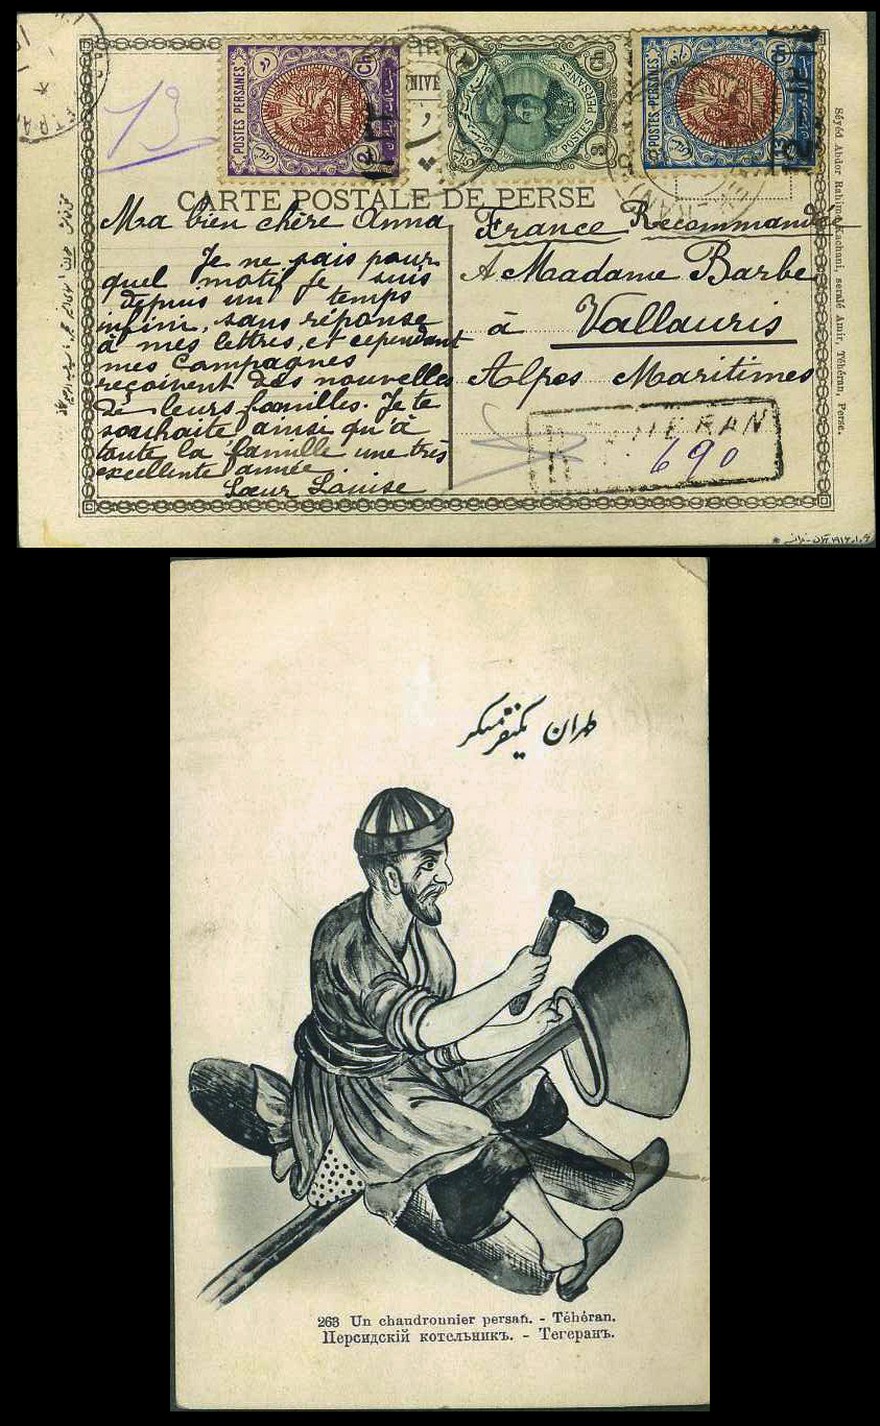 13
POSTES PERSANES
2 Ch
POSTES PERSANES
3 Ch
POSTES PERSANES
13 Ch
CARTE POSTALE DE PERSE
Ma bien chère Anna
Je ne sais pour
quel motif je suis
depuis un temps
infini, sans réponse
à mes lettres, et cependant
mes compagnes
reçoivent des nouvelles
de leurs familles. Je te
souhaite ainsi qu'à
toute la famille une très
excellente année
Sœur Louise
France Recommandée
A Madame Barbe
à Vallauris
Alpes Maritimes
TEHERAN
690
Séyéd Abdor Rahim Kachani, seraïé Amir, Téhéran, Perse.
طهران یکنفر مسگر
263 Un chaudronnier persan. - Téhéran.
Персидскій котельникъ. - Тегеранъ.